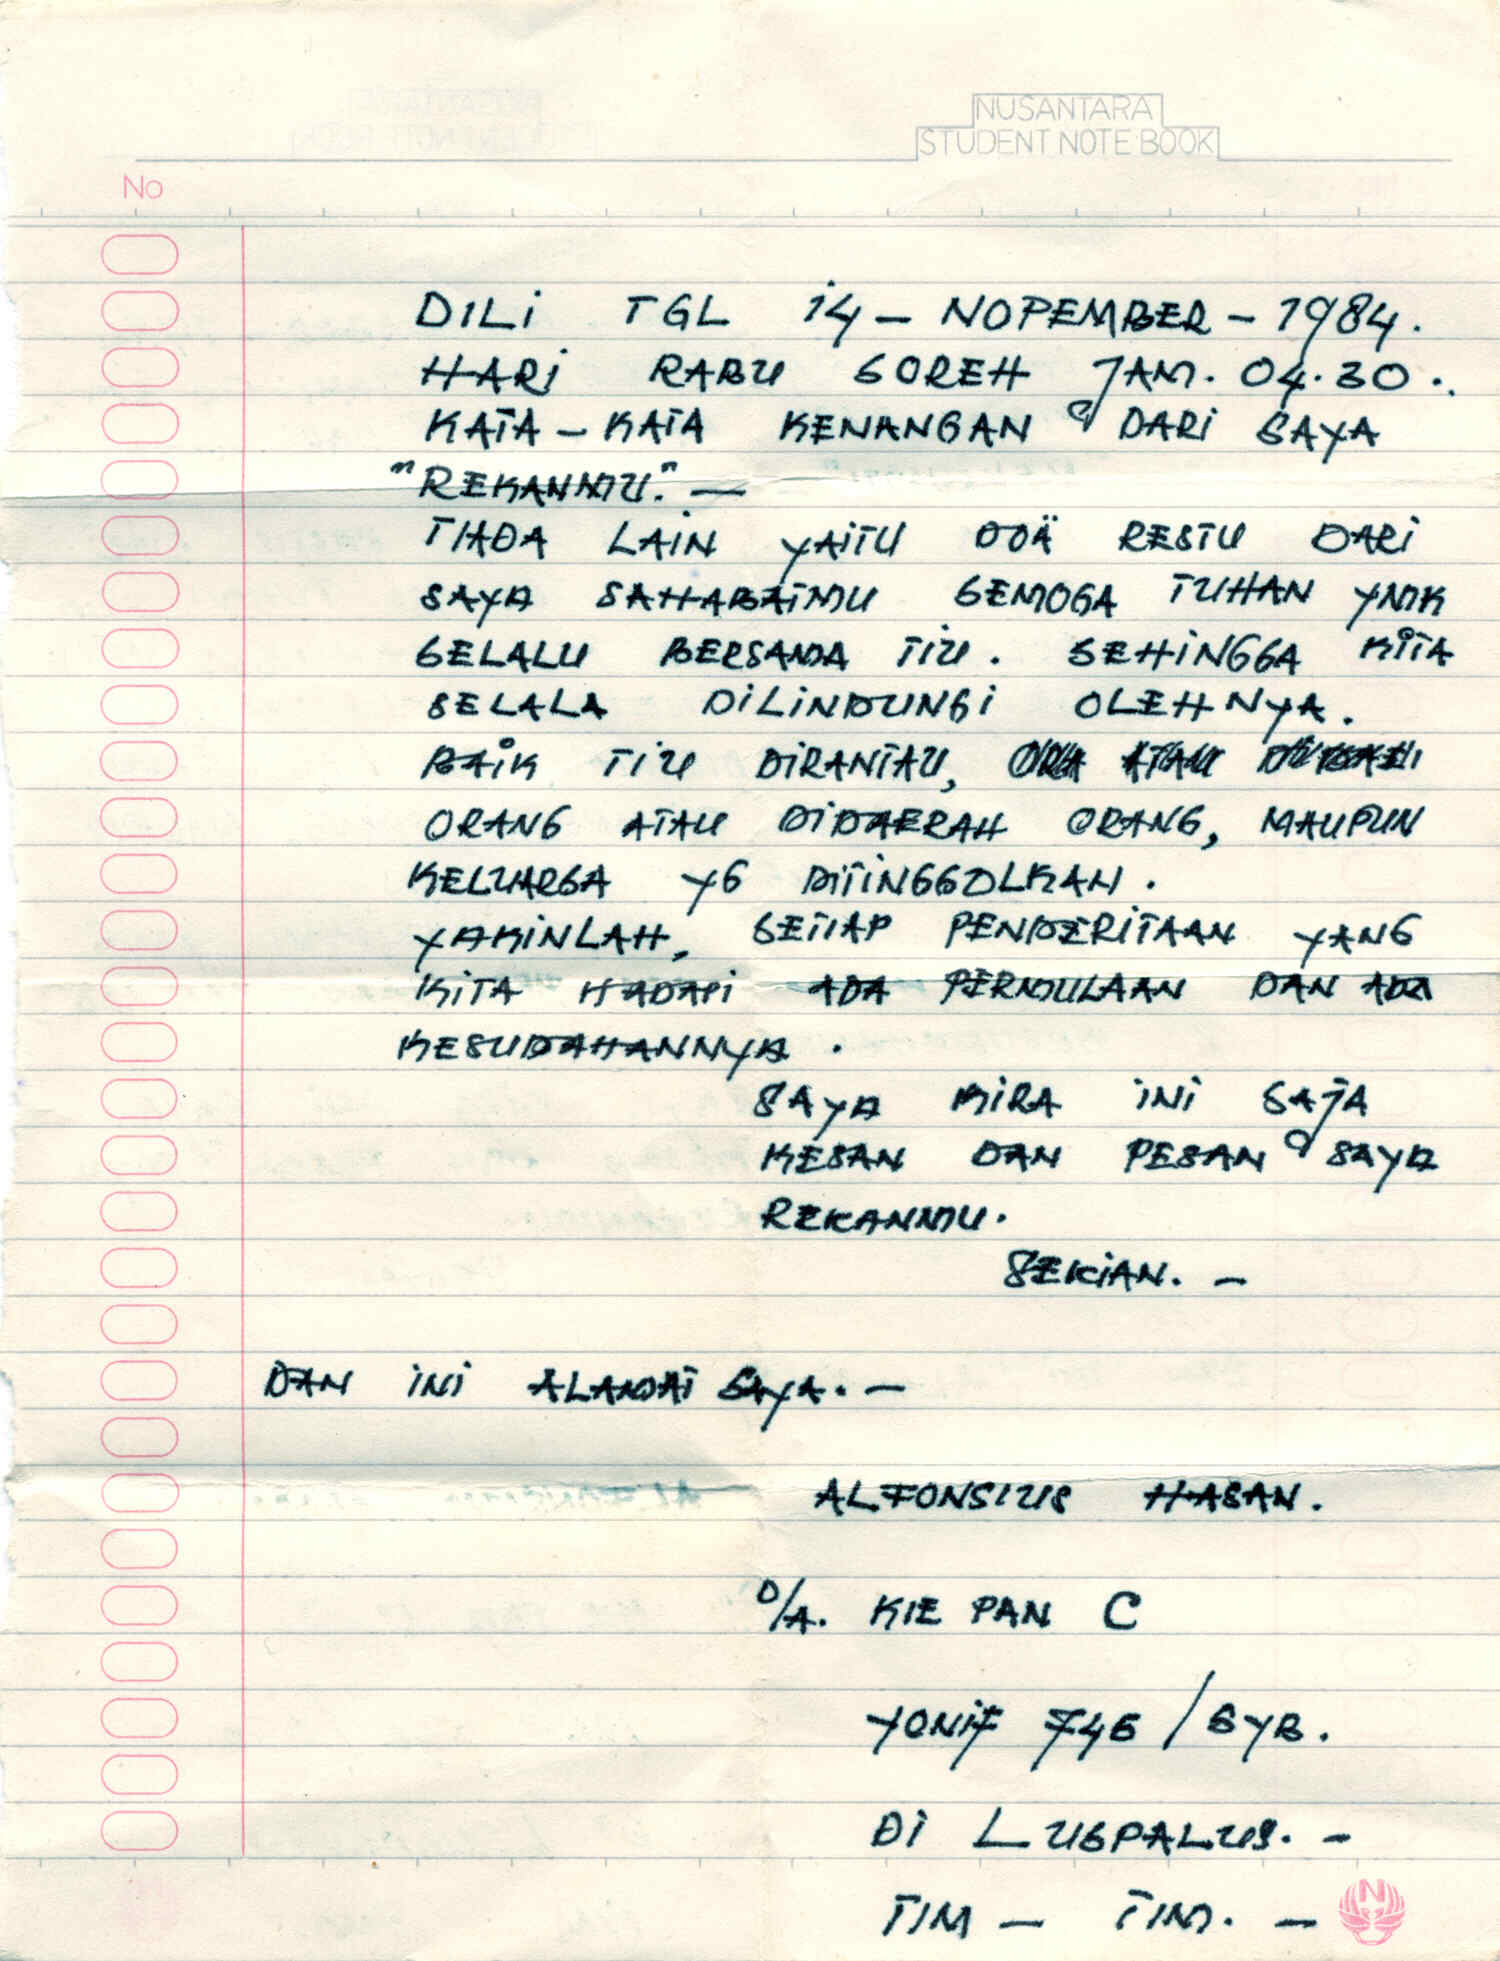 NUSANTARA
STUDENT NOTE BOOK
No
DILI TGL 14 - NOPEMBER - 1984.
HARI RABU SOREH JAM. 04.30..
KATA - KATA KENANGAN DARI SAYA
"REKANMU." —
TIADA LAIN YAITU DOA RESTU DARI
SAYA SAHABATMU SEMOGA TUHAN YMK
SELALU BERSAMA TIU. SEHINGGA KITA
SELALA DILINDUNGI OLEHNYA.
BAIK TIU DIRANTAU,
ORANG ATAU DIDAERAH ORANG, MAUPUN
KELUARGA YG DITINGGOLKAN.
YAKINLAH, SETIAP PENDERITAAN YANG
KITA HADAPI ADA PERMULAAN DAN ADA
KESUDAHANNYA.
SAYA KIRA INI SAJA
KESAN DAN PESAN SAYA
REKANMU.
SEKIAN. —
DAN INI ALAMAT SAYA. —
ALFONSIUS HASAN.
D/A. KIE PAN C
YONIF 745 / SYB.
DI LUSPALUS. —
TIM - TIM. —
N